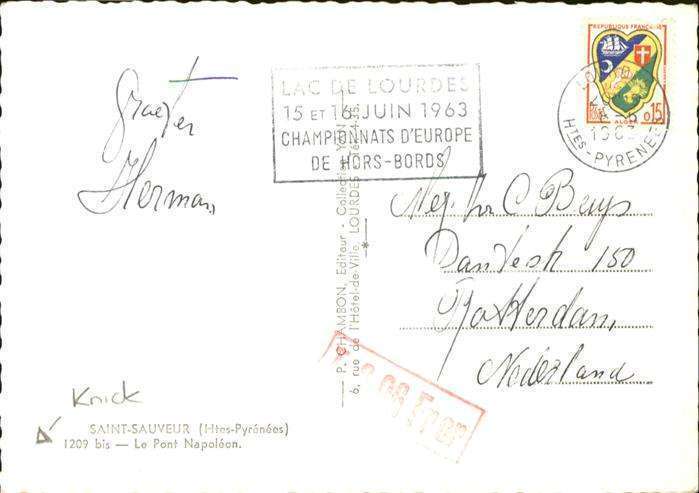 Groeten
Herman
LAC DE LOURDES
15 ET 16 JUIN 1963
CHAMPIONNATS D'EUROPE
DE HORS-BORDS
REPUBLIQUE FRANÇAISE
ALGER
0,15
1963
Htes-PYRENEES
C Buys
150
Rotterdam,
Nederland
P. CHAMBON, Editeur - Collection
6, rue de l'Hôtel-de-Ville, LOURDES
*
Knick
SAINT-SAUVEUR (Htes-Pyrénées)
1209 bis — Le Pont Napoléon.